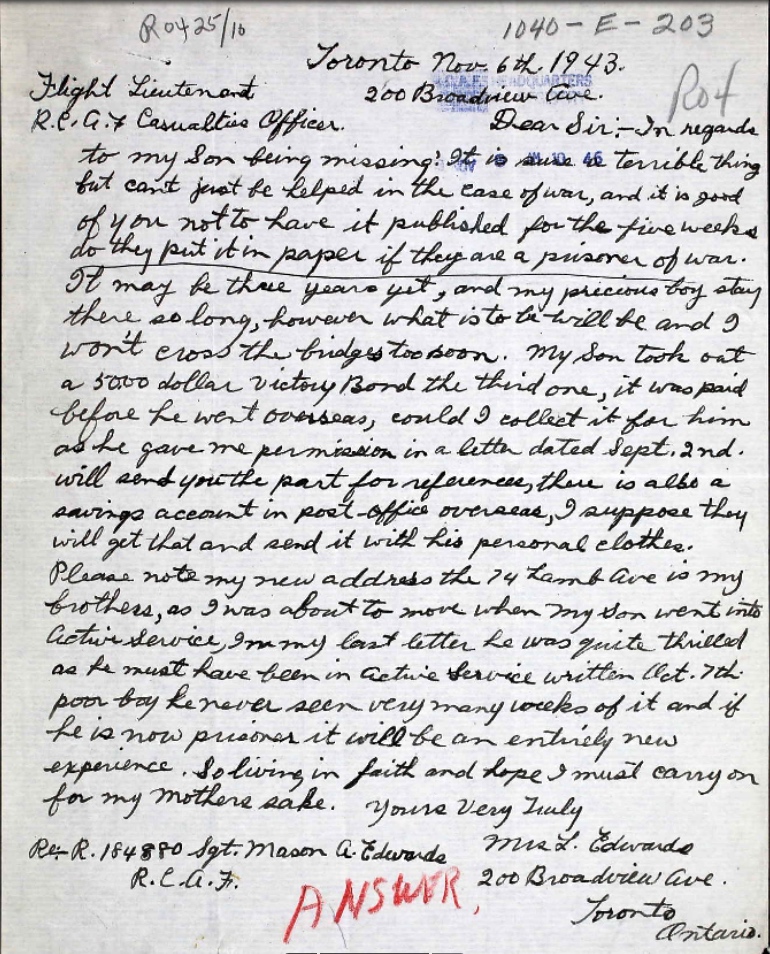 R0425/10
1040-E-203
Toronto Nov. 6th. 1943.
HEADQUARTERS
Flight Lieutenant 200 Broadview Ave.
R.C.A.F Casualties Officer. Dear Sir:- In regards
to my Son being missing! It is sure a terrible thing
but can't just be helped in the case of war, and it is good
of you not to have it published for the five weeks
do they put it in paper if they are a prisoner of war.
It may be three years yet, and my precious boy stay
there so long, however what is to be will be and I
won't cross the bridges too soon. My Son took out
a 5000 dollar Victory Bond the third one, it was paid
before he went overseas, could I collect it for him
as he gave me permission in a letter dated Sept. 2nd.
will send you the part for references, there is also a
savings account in post-office overseas, I suppose they
will get that and send it with his personal clothes.
Please note my new address the 74 Lamb Ave is my
brothers, as I was about to move when my Son went into
Active Service, In my last letter he was quite thrilled
as he must have been in Active Service written Oct. 7th.
poor boy he never seen very many weeks of it and if
he is now prisoner it will be an entirely new
experience. So living in faith and hope I must carry on
for my Mothers sake. Yours Very Truly
Mrs L. Edwards
Re:- R. 184880 Sgt. Mason A. Edwards
R.C.A.F. 200 Broadview Ave.
ANSWER.
Toronto
Ontario.